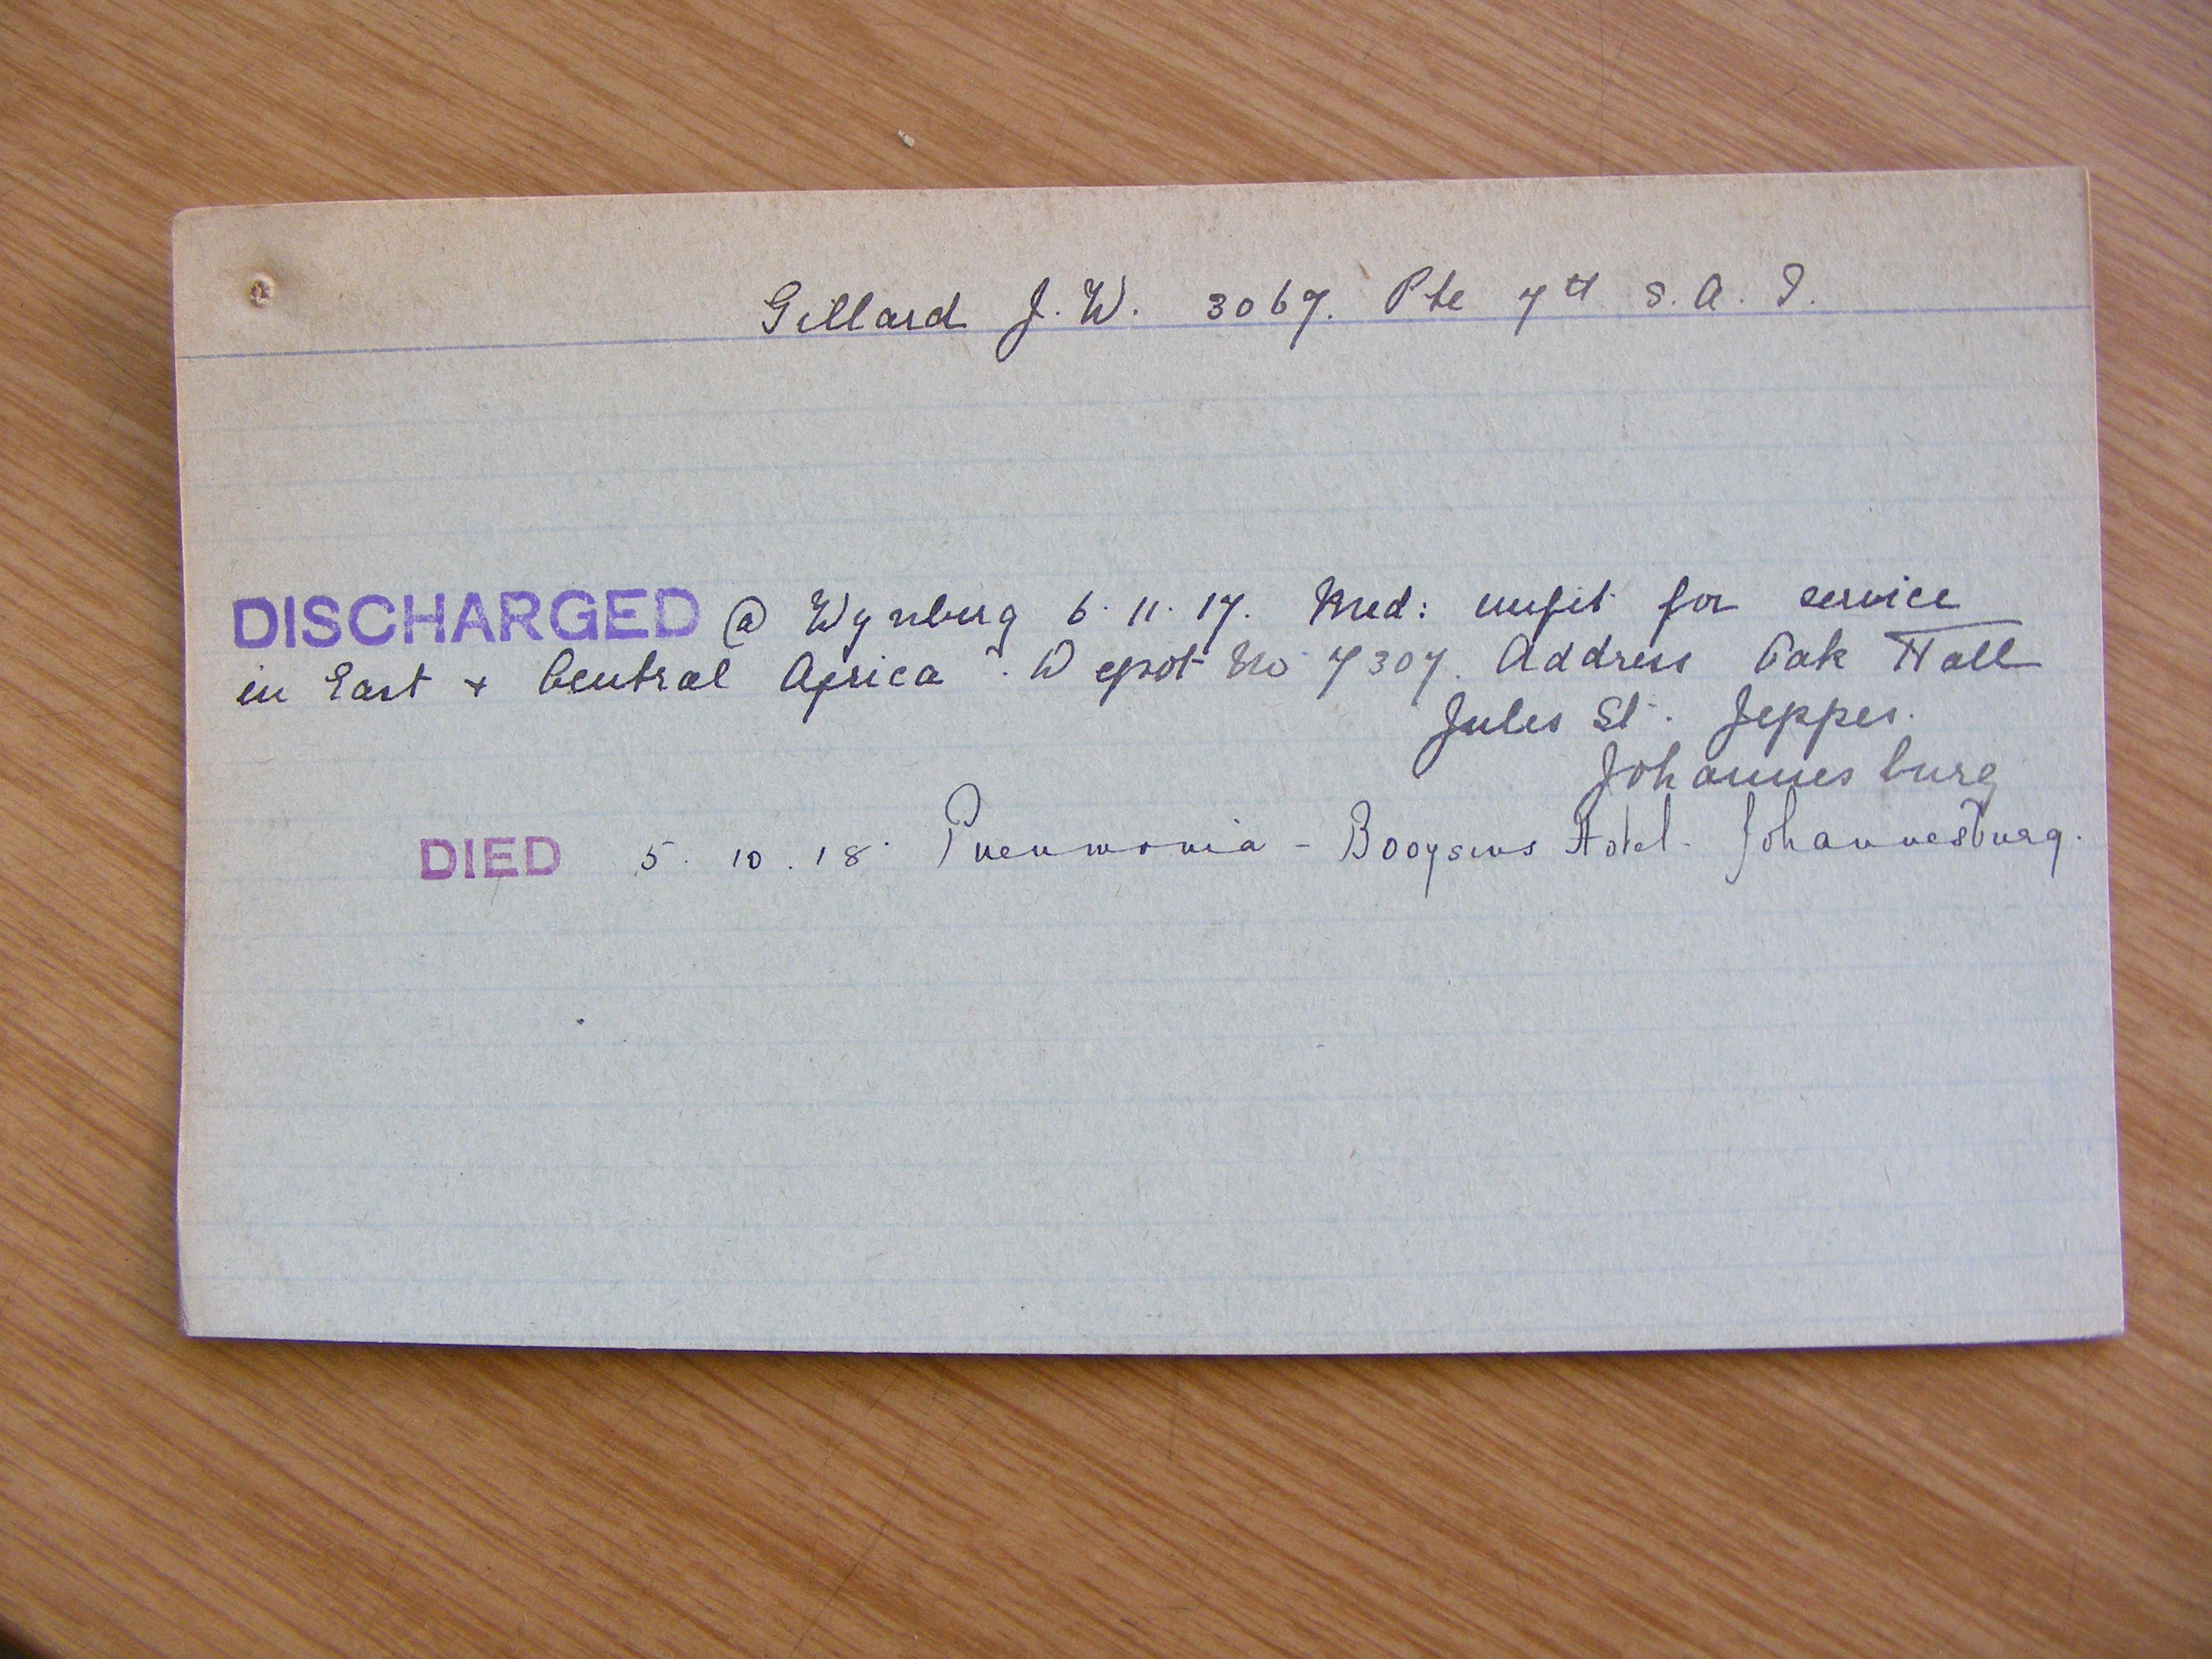 Gillard J. W. 3067. Pte 7th S. A. I.
DISCHARGED @ Wynberg 6.11.17. Med: unfit for service
in East + Central Africa. Depot No 7307. Address Oak Hall
Jules St. Jeppes.
Johannesburg
DIED 5.10.18. Pneumonia - Booysens Hotel - Johannesburg.